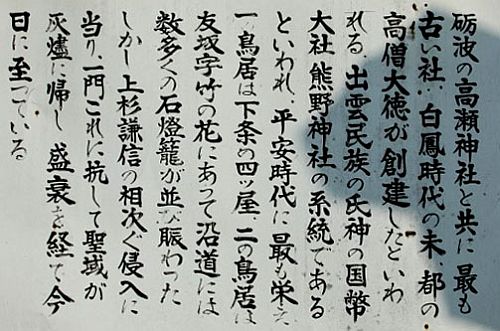 砺波の高瀬神社と共に最も
古い社、白鳳時代の末、都の
高僧大徳が創建したといわ
れる。出雲民族の氏神の国幣
大社熊野神社の系統である
といわれ、平安時代に最も栄え
一の鳥居は下条の四ッ屋、二の鳥居は
友坂字竹の花にあって沿道には
数多くの石燈籠が並び賑わった
しかし上杉謙信の相次ぐ侵入に
当り、一門これに抗して聖域が
灰燼に帰し盛衰を経て今
日に至っている